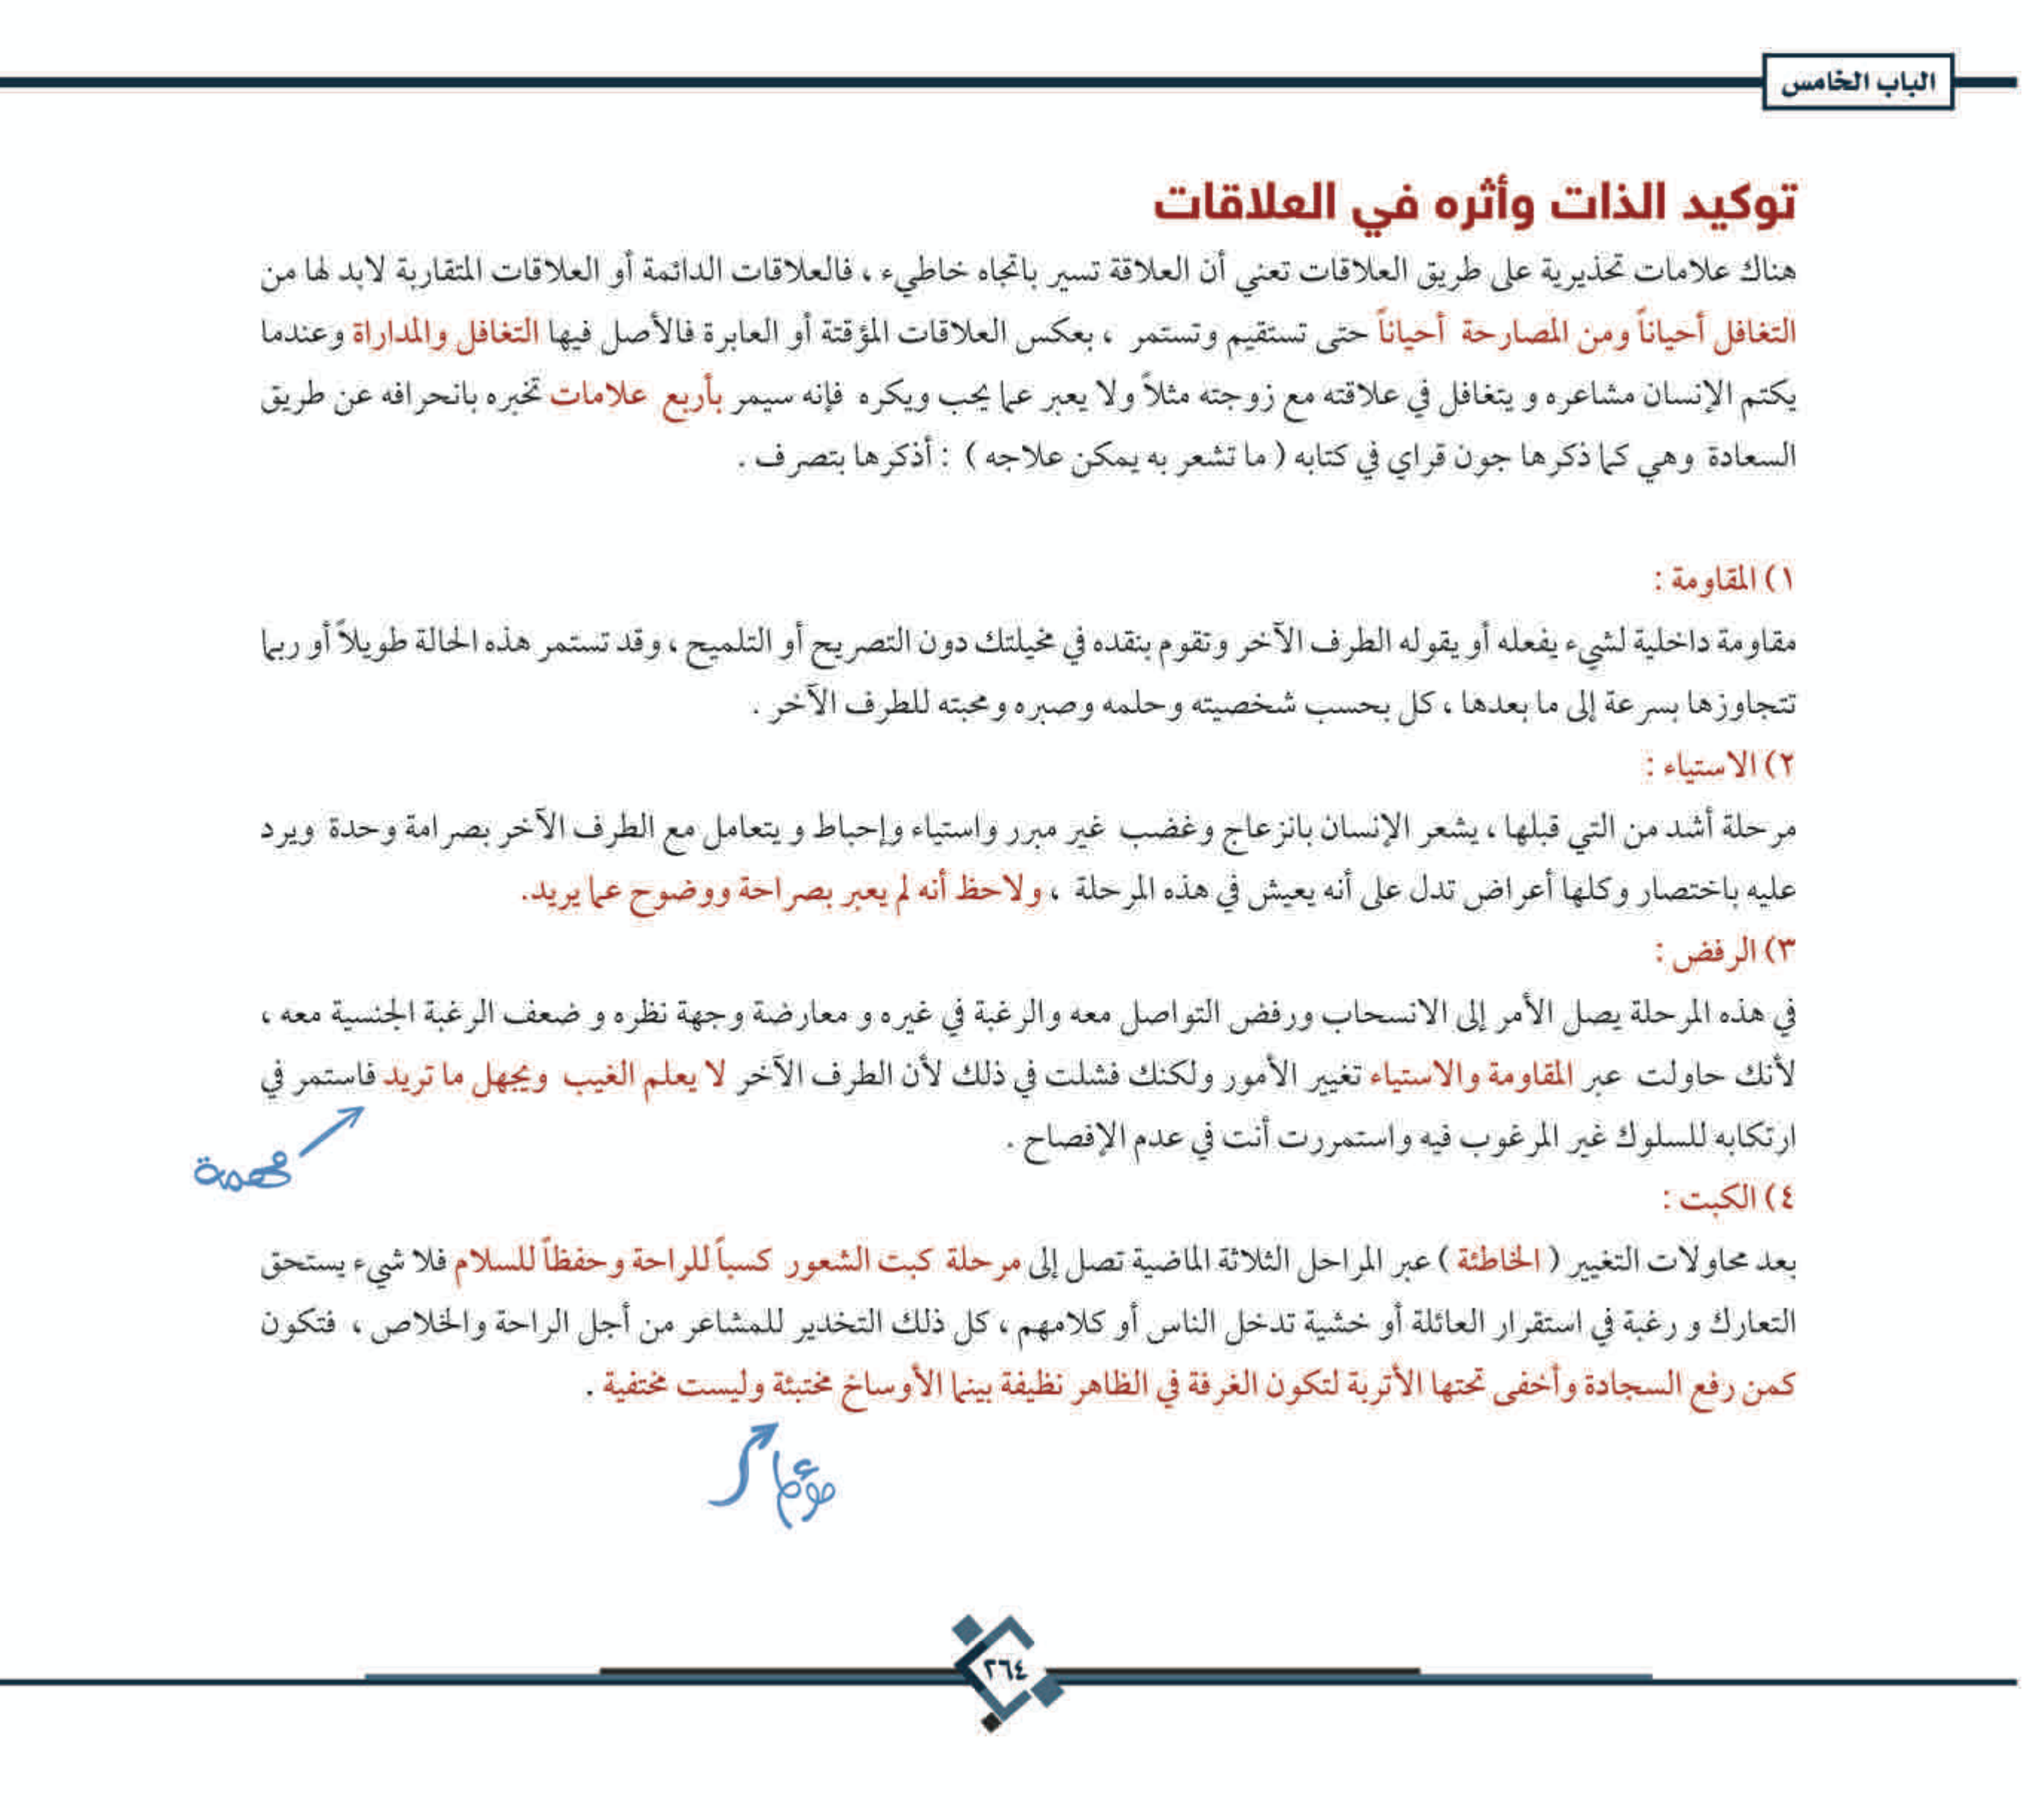 الباب الخامس
توكيد الذات وأثره في العلاقات
هناك علامات تحذيرية على طريق العلاقات تعني أن العلاقة تسير باتجاه خاطيء ، فالعلاقات الدائمة أو العلاقات المتقاربة لابد لها من
التغافل أحياناً ومن المصارحة أحياناً حتى تستقيم وتستمر ، بعكس العلاقات المؤقتة أو العابرة فالأصل فيها التغافل والمداراة وعندما
يكتم الإنسان مشاعره و يتغافل في علاقته مع زوجته مثلاً ولا يعبر عما يحب ويكره فإنه سيمر بأربع علامات تخبره بانحرافه عن طريق
السعادة وهي كما ذكرها جون قراي في كتابه ( ما تشعر به يمكن علاجه ) : أذكرها بتصرف .
١) المقاومة :
مقاومة داخلية لشيء يفعله أو يقوله الطرف الآخر وتقوم بنقده في مخيلتك دون التصريح أو التلميح ، وقد تستمر هذه الحالة طويلاً أو ربما
تتجاوزها بسرعة إلى ما بعدها ، كل بحسب شخصيته وحلمه وصبره ومحبته للطرف الآخر .
٢) الاستياء :
مرحلة أشد من التي قبلها ، يشعر الإنسان بانزعاج وغضب غير مبرر واستياء وإحباط و يتعامل مع الطرف الآخر بصرامة وحدة ويرد
عليه باختصار وكلها أعراض تدل على أنه يعيش في هذه المرحلة ، ولاحظ أنه لم يعبر بصراحة ووضوح عما يريد.
٣) الرفض :
في هذه المرحلة يصل الأمر إلى الانسحاب ورفض التواصل معه والرغبة في غيره و معارضة وجهة نظره و ضعف الرغبة الجنسية معه ،
لأنك حاولت عبر المقاومة والاستياء تغيير الأمور ولكنك فشلت في ذلك لأن الطرف الآخر لا يعلم الغيب ويجهل ما تريد فاستمر في
ارتكابه للسلوك غير المرغوب فيه واستمررت أنت في عدم الإفصاح .
مهمة
٤) الكبت :
بعد محاولات التغيير ( الخاطئة ) عبر المراحل الثلاثة الماضية تصل إلى مرحلة كبت الشعور كسباً للراحة وحفظاً للسلام فلا شيء يستحق
التعارك و رغبة في استقرار العائلة أو خشية تدخل الناس أو كلامهم ، كل ذلك التخدير للمشاعر من أجل الراحة والخلاص ، فتكون
كمن رفع السجادة وأخفى تحتها الأتربة لتكون الغرفة في الظاهر نظيفة بينما الأوساخ مختبئة وليست مختفية .
٢٦٤